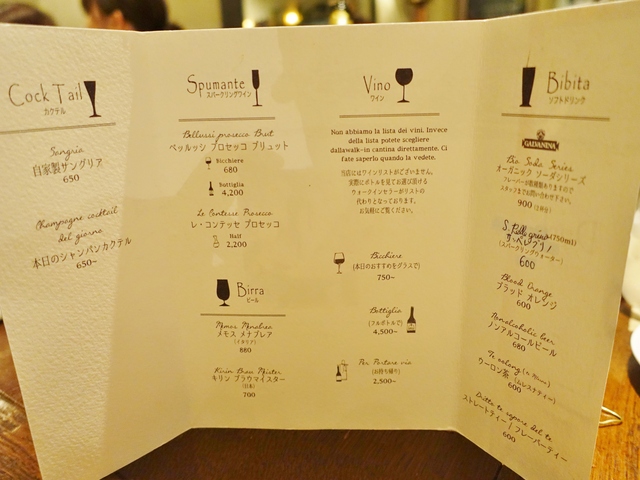 Cock Tail
カクテル
Sangria
自家製サングリア
650
Champagne cocktail
del giorno
本日のシャンパンカクテル
650~
Spumante
スパークリングワイン
Bellussi prosecco Brut
ベッルッシ プロセッコ ブリュット
Bicchiere
680
Buttiglia
4,200
Le Contesse Prosecco
レ・コンテッセ プロセッコ
Half
2,200
Birra
ビール
メモス メナブレア
(イタリア)
880
キリン ブラウマイスター
(日本)
700
Vino
ワイン
Non abbiamo la lista dei vini. Invece
della lista potete scegliere
dallawalk-in cantina direttamente. Ci
fate saperlo quando la vedete.
当店にはワインリストがございません。
実際にボトルを見てお選び頂ける
ウォークインセラーがリストの
代わりとなっております。
お気軽にご覧ください。
Bicchiere
(本日のおすすめをグラスで)
750~
Bottiglia
(フルボトルで)
4,500~
Per Portare via
(お持ち帰り)
2,500~
Bibita
ソフトドリンク
GALVANINA
Bio Soda Series
オーガニック ソーダシリーズ
フレーバーが数種類ありますので
スタッフまでお問い合わせ下さい。
900 (2杯分)
S.Pellegrino(750ml)
(スパークリングウォーター)
600
Blood Orange
ブラッド オレンジ
600
Nonalcoholic beer
ノンアルコールビール
680
Te oolong
ウーロン茶 (ムレスナティー)
600
ストレートティー / フレーバーティー
600